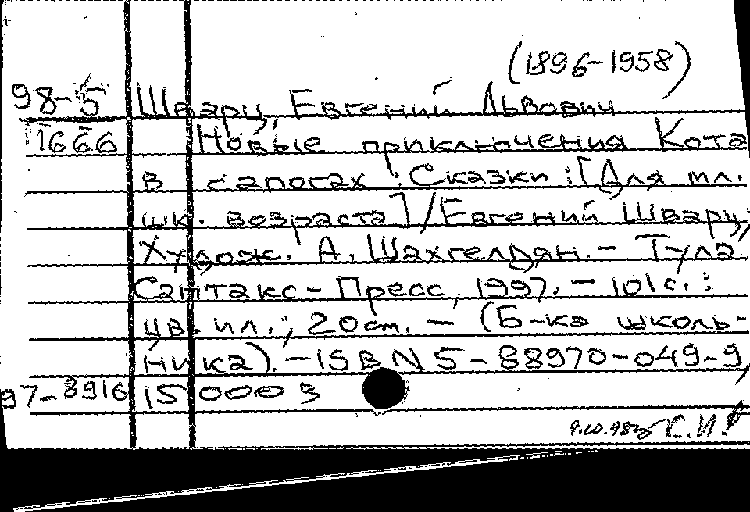 (1896-1958)
98-5 Шварц, Евгений Львович
1666 Новые приключения Кота
в сапогах : Сказки : [Для мл.
шк. возраста] / Евгений Шварц;
Худож. А. Шахгелдян. - Тула
Сантакс-Пресс, 1997. - 101с. :
цв. ил.; 20см. - (Б-ка школь-
ника). - ISBN 5-88970-049-9,
97-8916 150003
9.10.98г